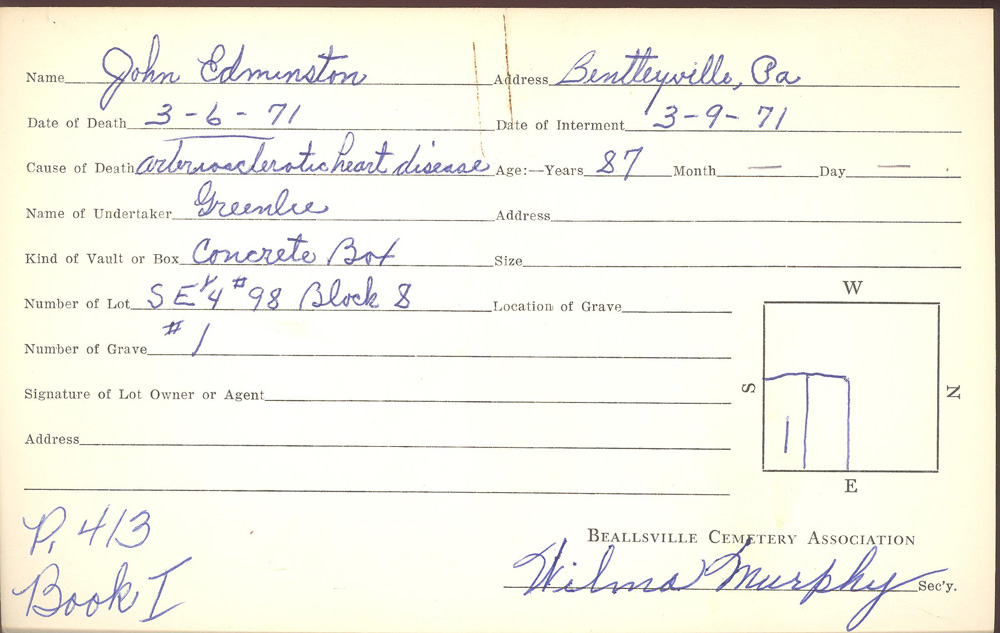 Name John Edminston Address Bentleyville, Pa
Date of Death 3-6-71 Date of Interment 3-9-71
Cause of Death arteriosclerotic heart disease Age:—Years 87 Month — Day —
Name of Undertaker Greenlee Address
Kind of Vault or Box Concrete Box Size
Number of Lot SE 1/4 #98 Block 8 Location of Grave
Number of Grave #1
Signature of Lot Owner or Agent
Address
W
S
N
1
E
P. 413
Book I
BEALLSVILLE CEMETERY ASSOCIATION
Wilma Murphy Sec'y.